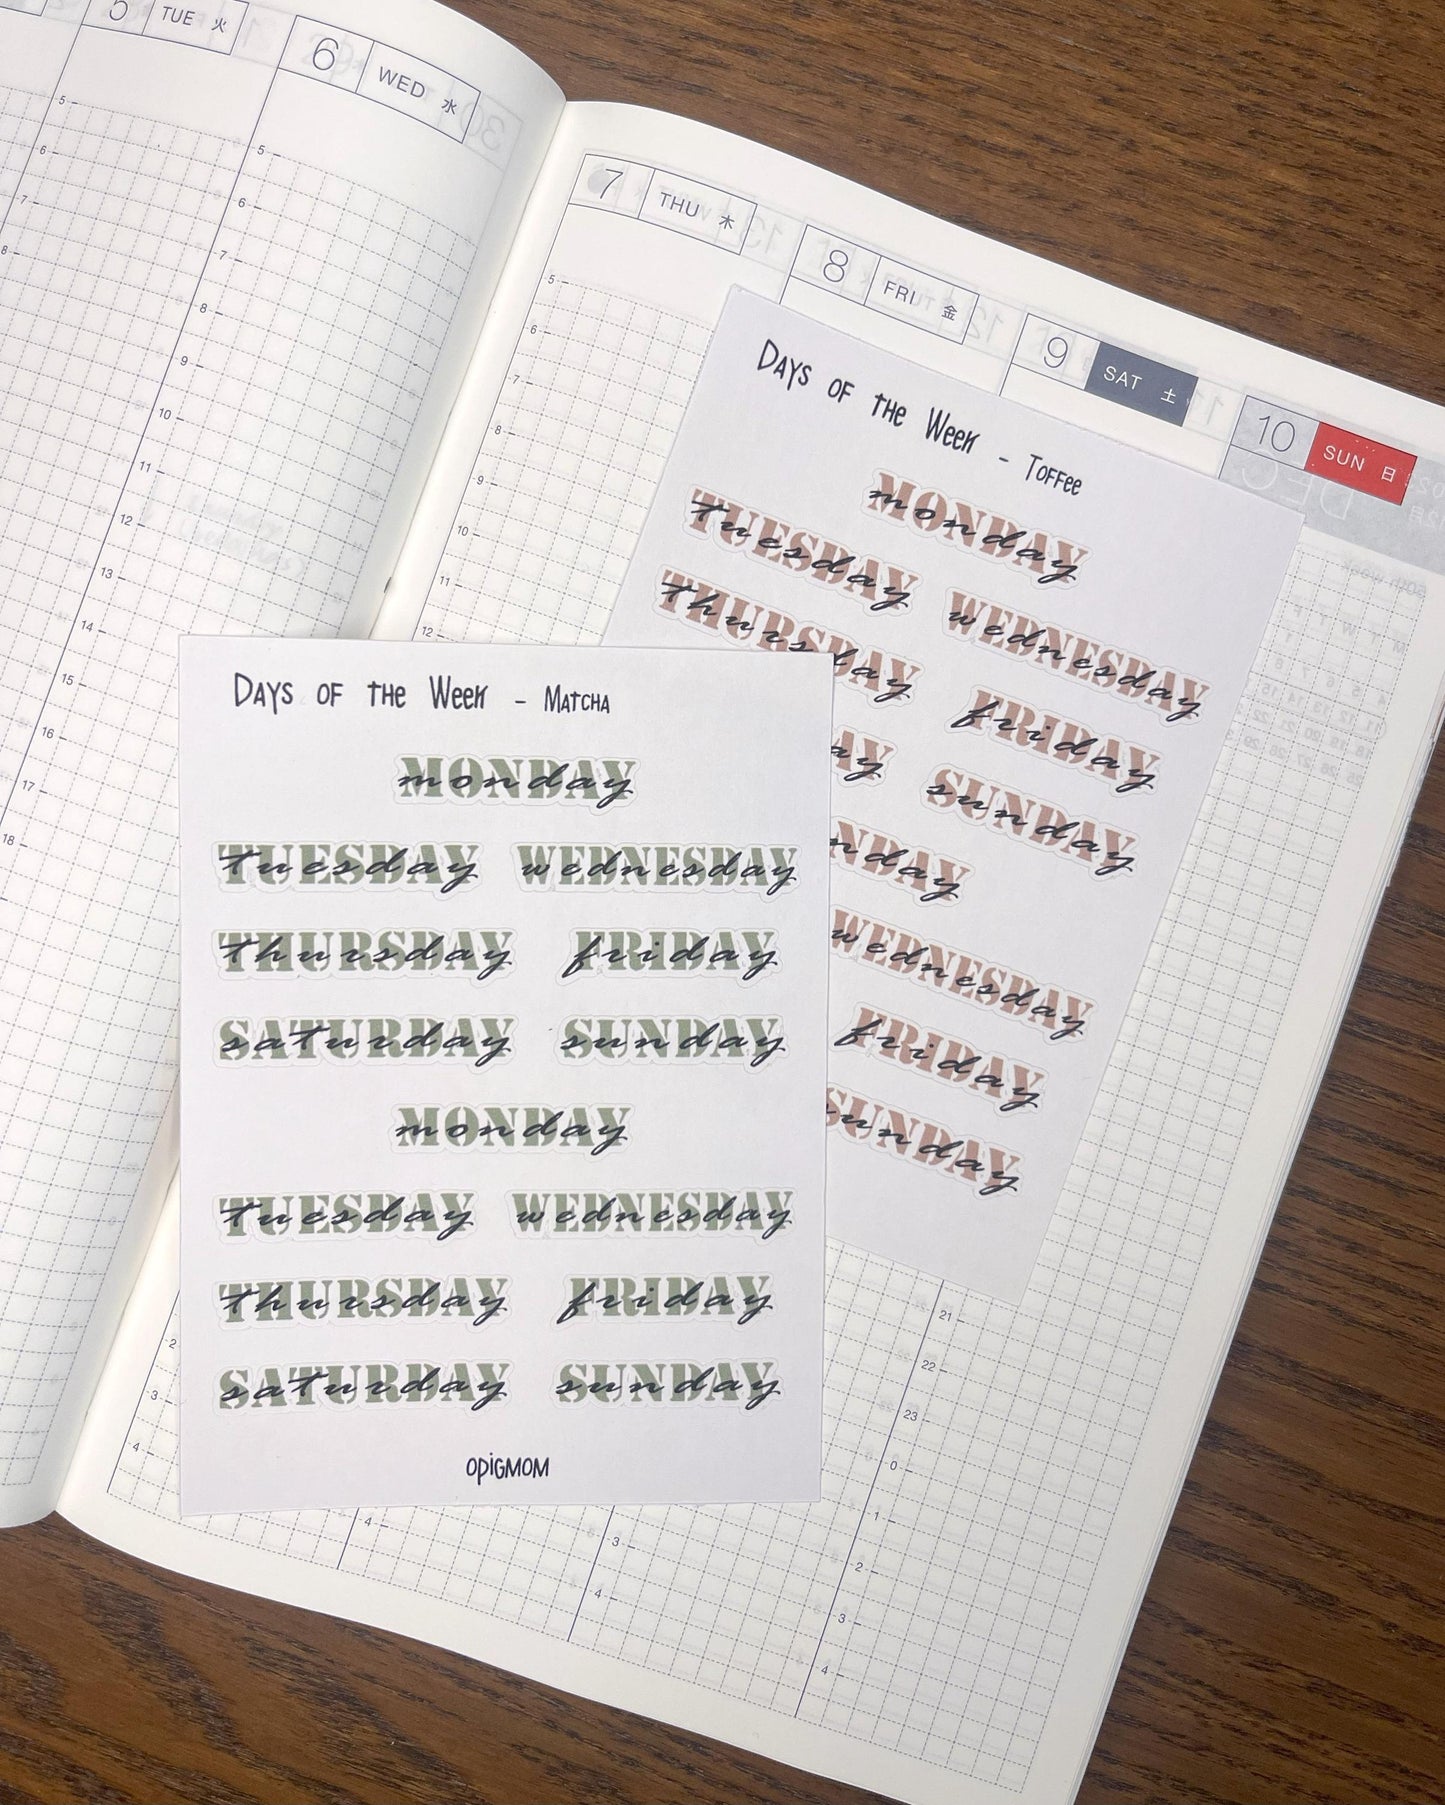 TUE 火
6 WED 水
7 THU 木
8 FRI 金
9 SAT 土
10 SUN 日
5
6
7
8
5
6
7
8
9
10
11
12
13
14
15
16
17
18
5
6
7
8
9
10
11
12
Days of the Week - Toffee
MONDAY monday
TUESDAY tuesday
WEDNESDAY wednesday
THURSDAY thursday
FRIDAY friday
SUNDAY sunday
WEDNESDAY wednesday
FRIDAY friday
SUNDAY sunday
Days of the Week - Matcha
MONDAY monday
TUESDAY tuesday WEDNESDAY wednesday
THURSDAY thursday FRIDAY friday
SATURDAY saturday SUNDAY sunday
MONDAY monday
TUESDAY tuesday WEDNESDAY wednesday
THURSDAY thursday FRIDAY friday
SATURDAY saturday SUNDAY sunday
OPiGMOM
2
3
4
4
3
4
21
22
23
0
1
2
3
4